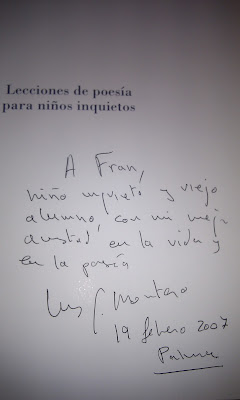 Lecciones de poesía
para niños inquietos
A Fran,
niño inquieto y viejo
alumno, con mi mejor
amistad, en la vida y
en la poesía
Luis G. Montero
19 febrero 2007